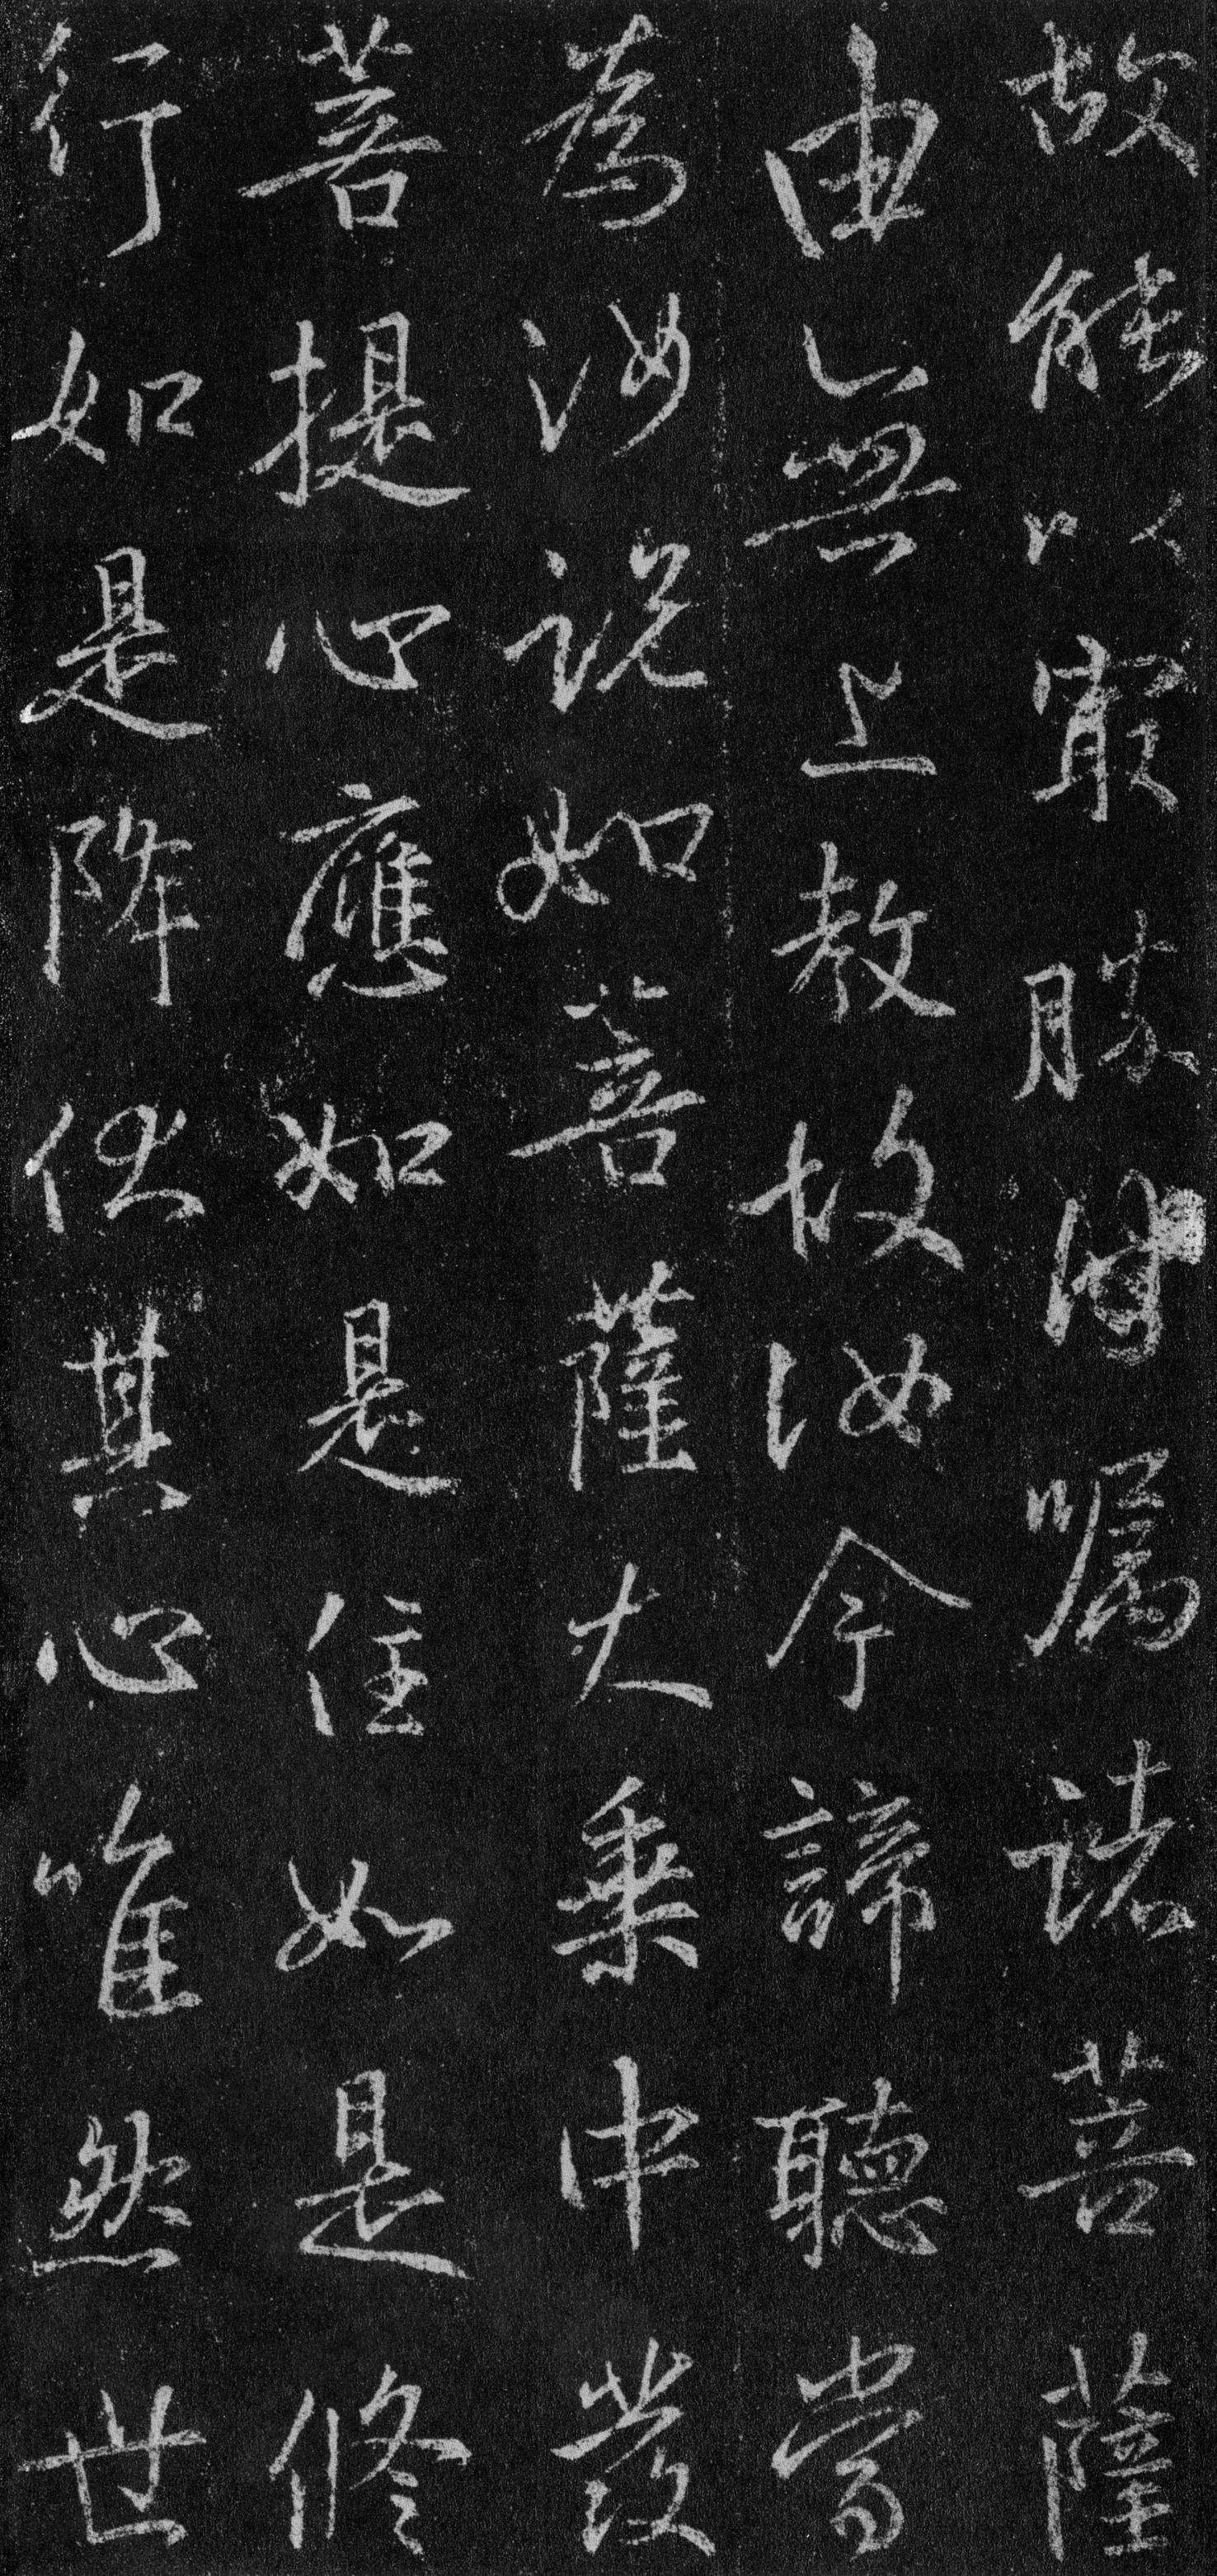 故能以㝡勝付囑諸菩薩
由以無上教故汝今諦聽當
為汝說如菩薩大乘中發
菩提心應如是住如是修
行如是降伏其心唯然世